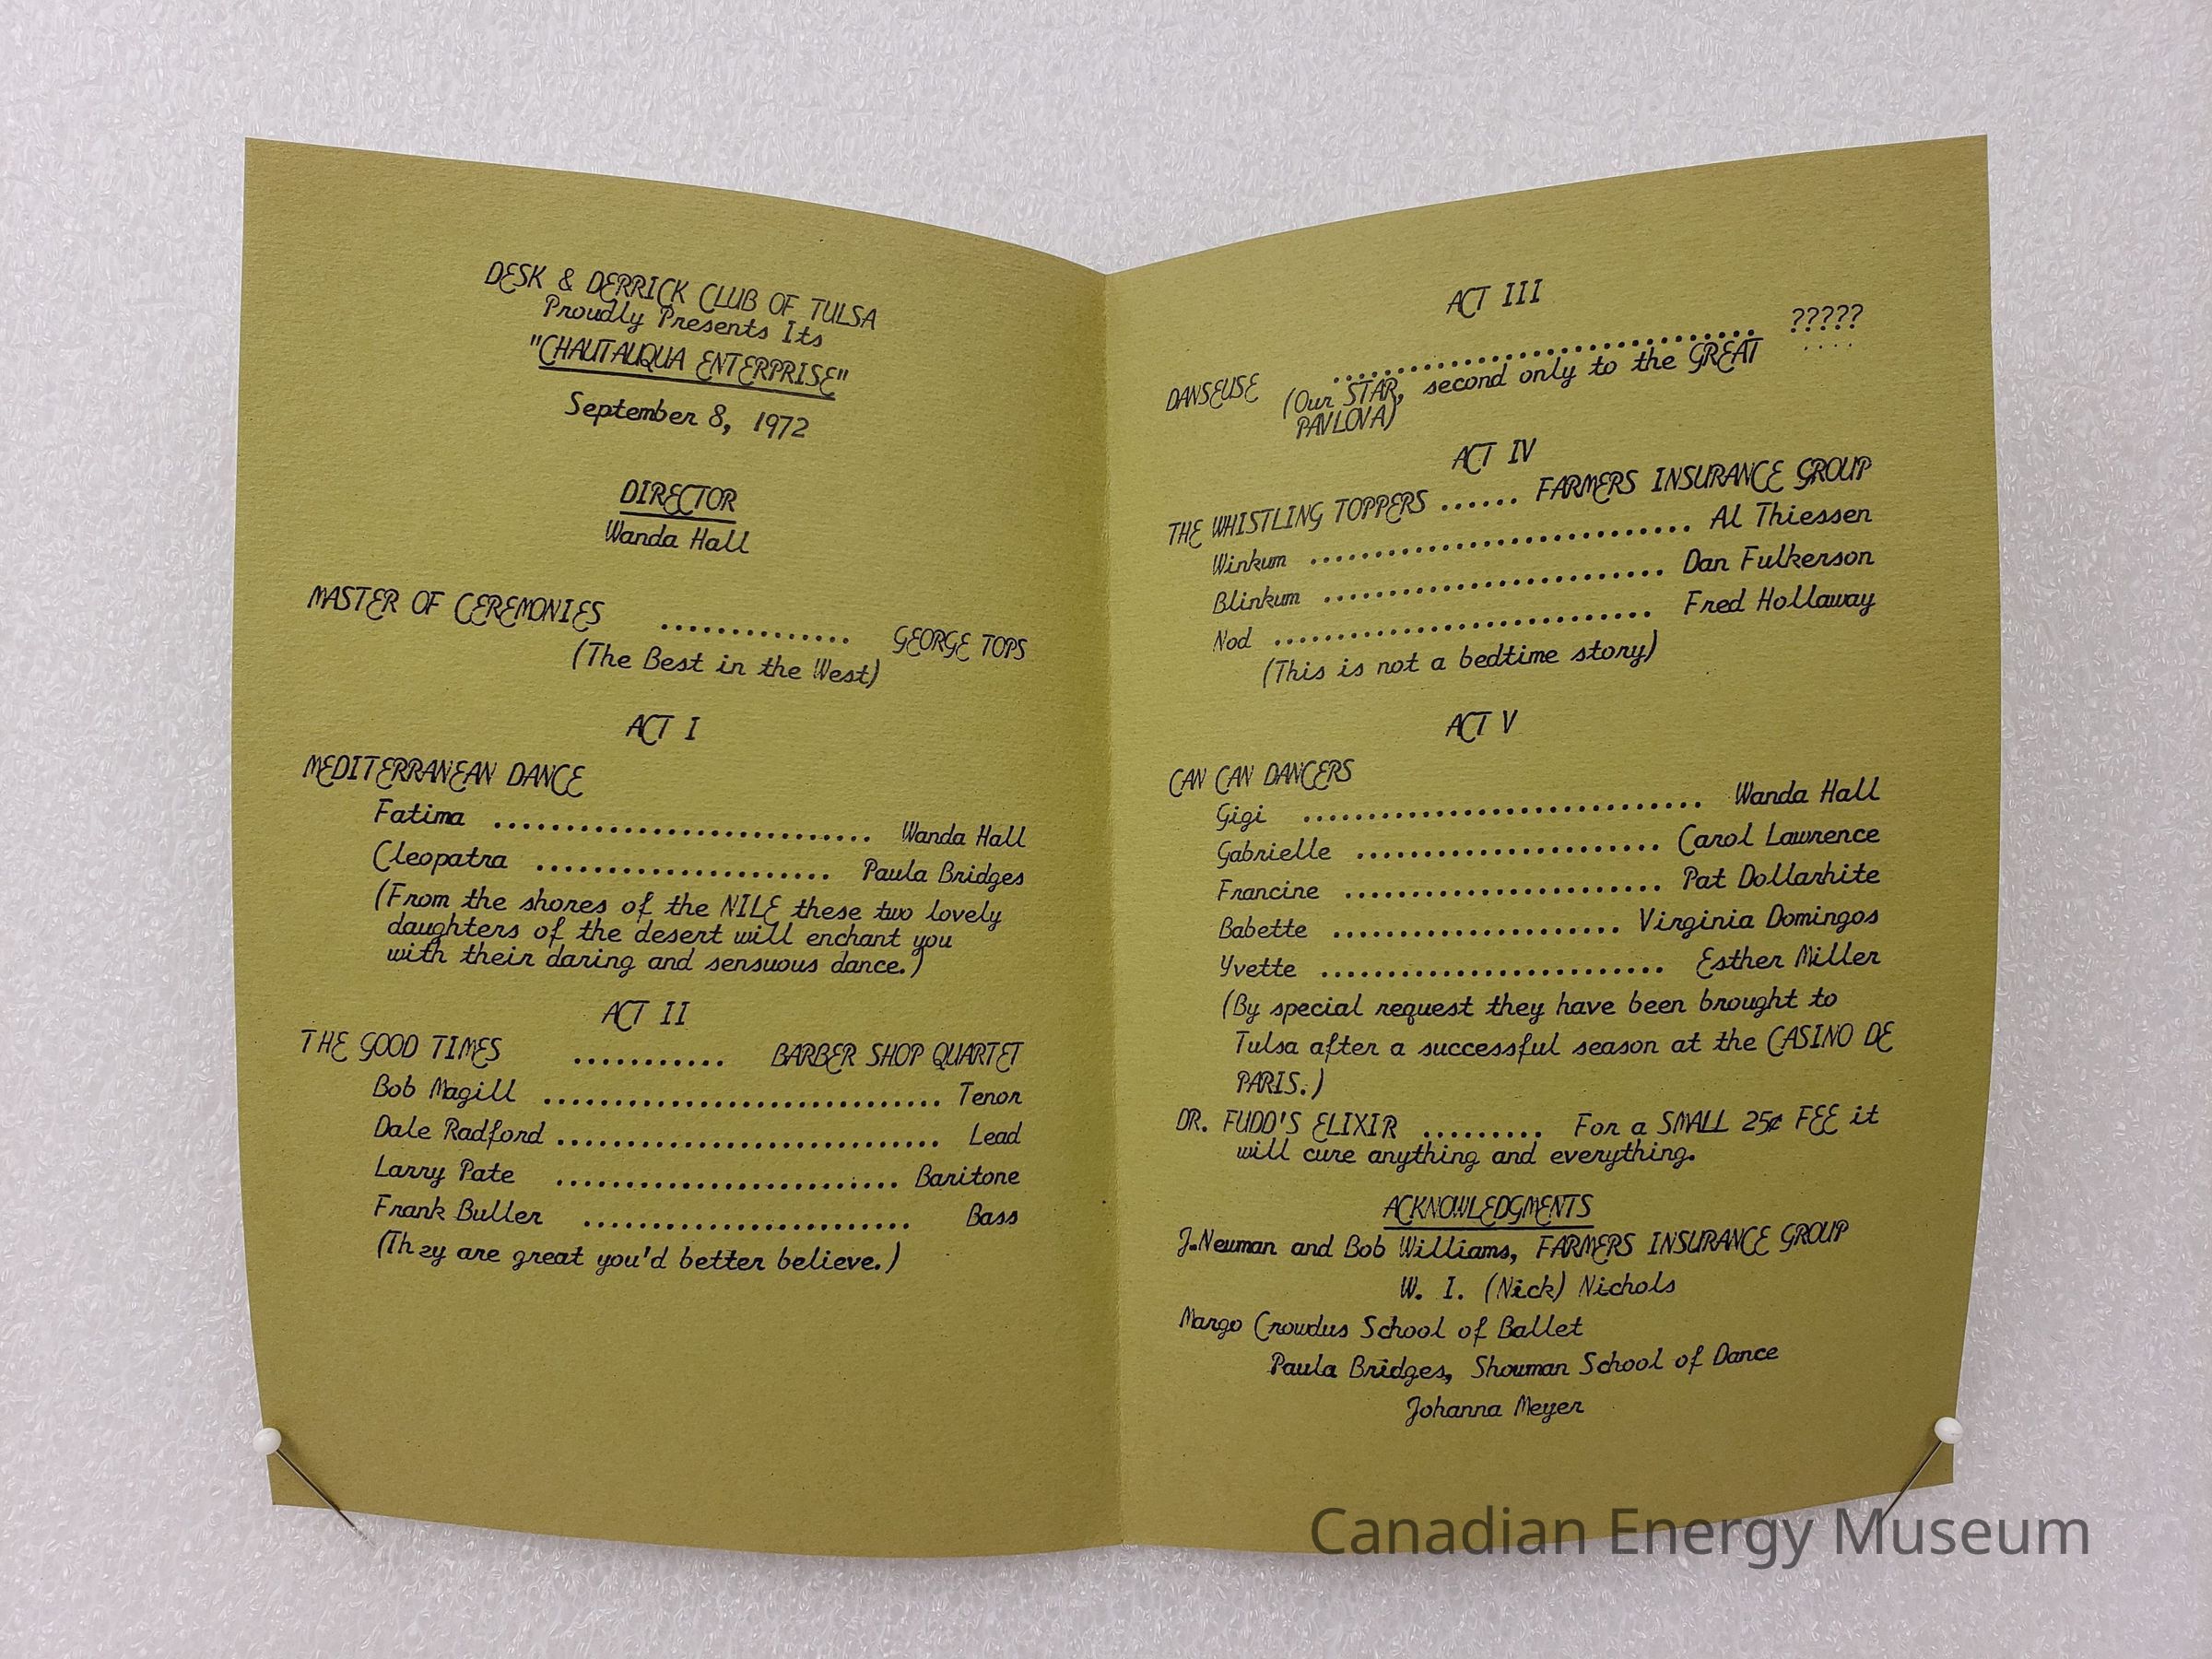 DESK & DERRICK CLUB OF TULSA
Proudly Presents Its
"CHAUTAUQUA ENTERPRISE"
September 8, 1972
DIRECTOR
Wanda Hall
MASTER OF CEREMONIES .............. GEORGE TOPS
(The Best in the West)
ACT I
MEDITERRANEAN DANCE
Fatima ........................... Wanda Hall
Cleopatra ..................... Paula Bridges
(From the shores of the NILE these two lovely
daughters of the desert will enchant you
with their daring and sensuous dance.)
ACT II
THE GOOD TIMES ........... BARBER SHOP QUARTET
Bob Magill ............................ Tenor
Dale Radford ........................... Lead
Larry Pate ........................ Baritone
Frank Buller ....................... Bass
(They are great you'd better believe.)
ACT III
DANSEUSE .............................. ?????
(Our STAR, second only to the GREAT
PAVLOVA)
ACT IV
THE WHISTLING TOPPERS ...... FARMERS INSURANCE GROUP
Winkum ........................... Al Thiessen
Blinkum ........................ Dan Fulkerson
Nod ........................... Fred Hollaway
(This is not a bedtime story)
ACT V
CAN CAN DANCERS
Gigi ............................ Wanda Hall
Gabrielle ...................... Carol Lawrence
Francine ....................... Pat Dollarhite
Babette ..................... Virginia Domingos
Yvette ......................... Esther Miller
(By special request they have been brought to
Tulsa after a successful season at the CASINO DE
PARIS.)
DR. FUDD'S ELIXIR ......... For a SMALL 25¢ FEE it
will cure anything and everything.
ACKNOWLEDGMENTS
J.Neuman and Bob Williams, FARMERS INSURANCE GROUP
W. I. (Nick) Nichols
Margo Crowdus School of Ballet
Paula Bridges, Showman School of Dance
Johanna Meyer
Canadian Energy Museum